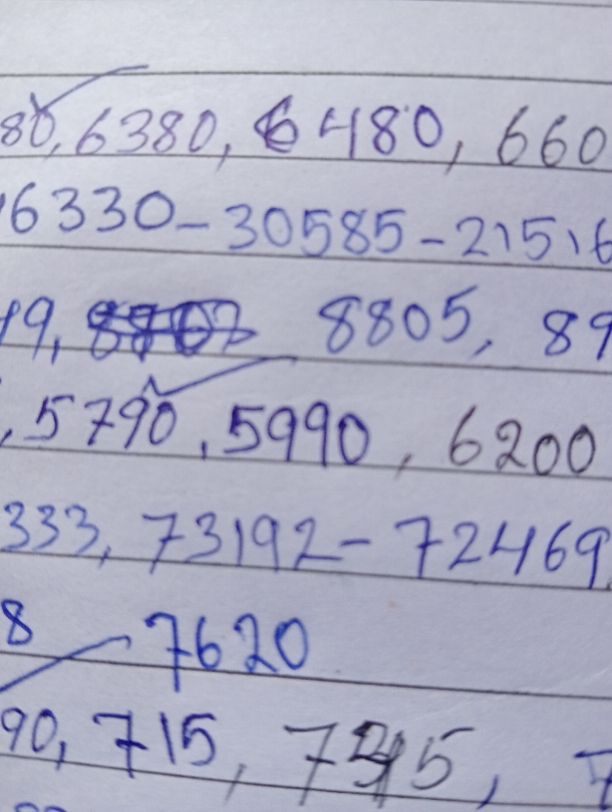 80, 6380, 6480, 660
6330-30585-21516
19, 8805, 89
, 5790, 5990, 6200
333, 73192-72469
8 7620
90, 715, 5,